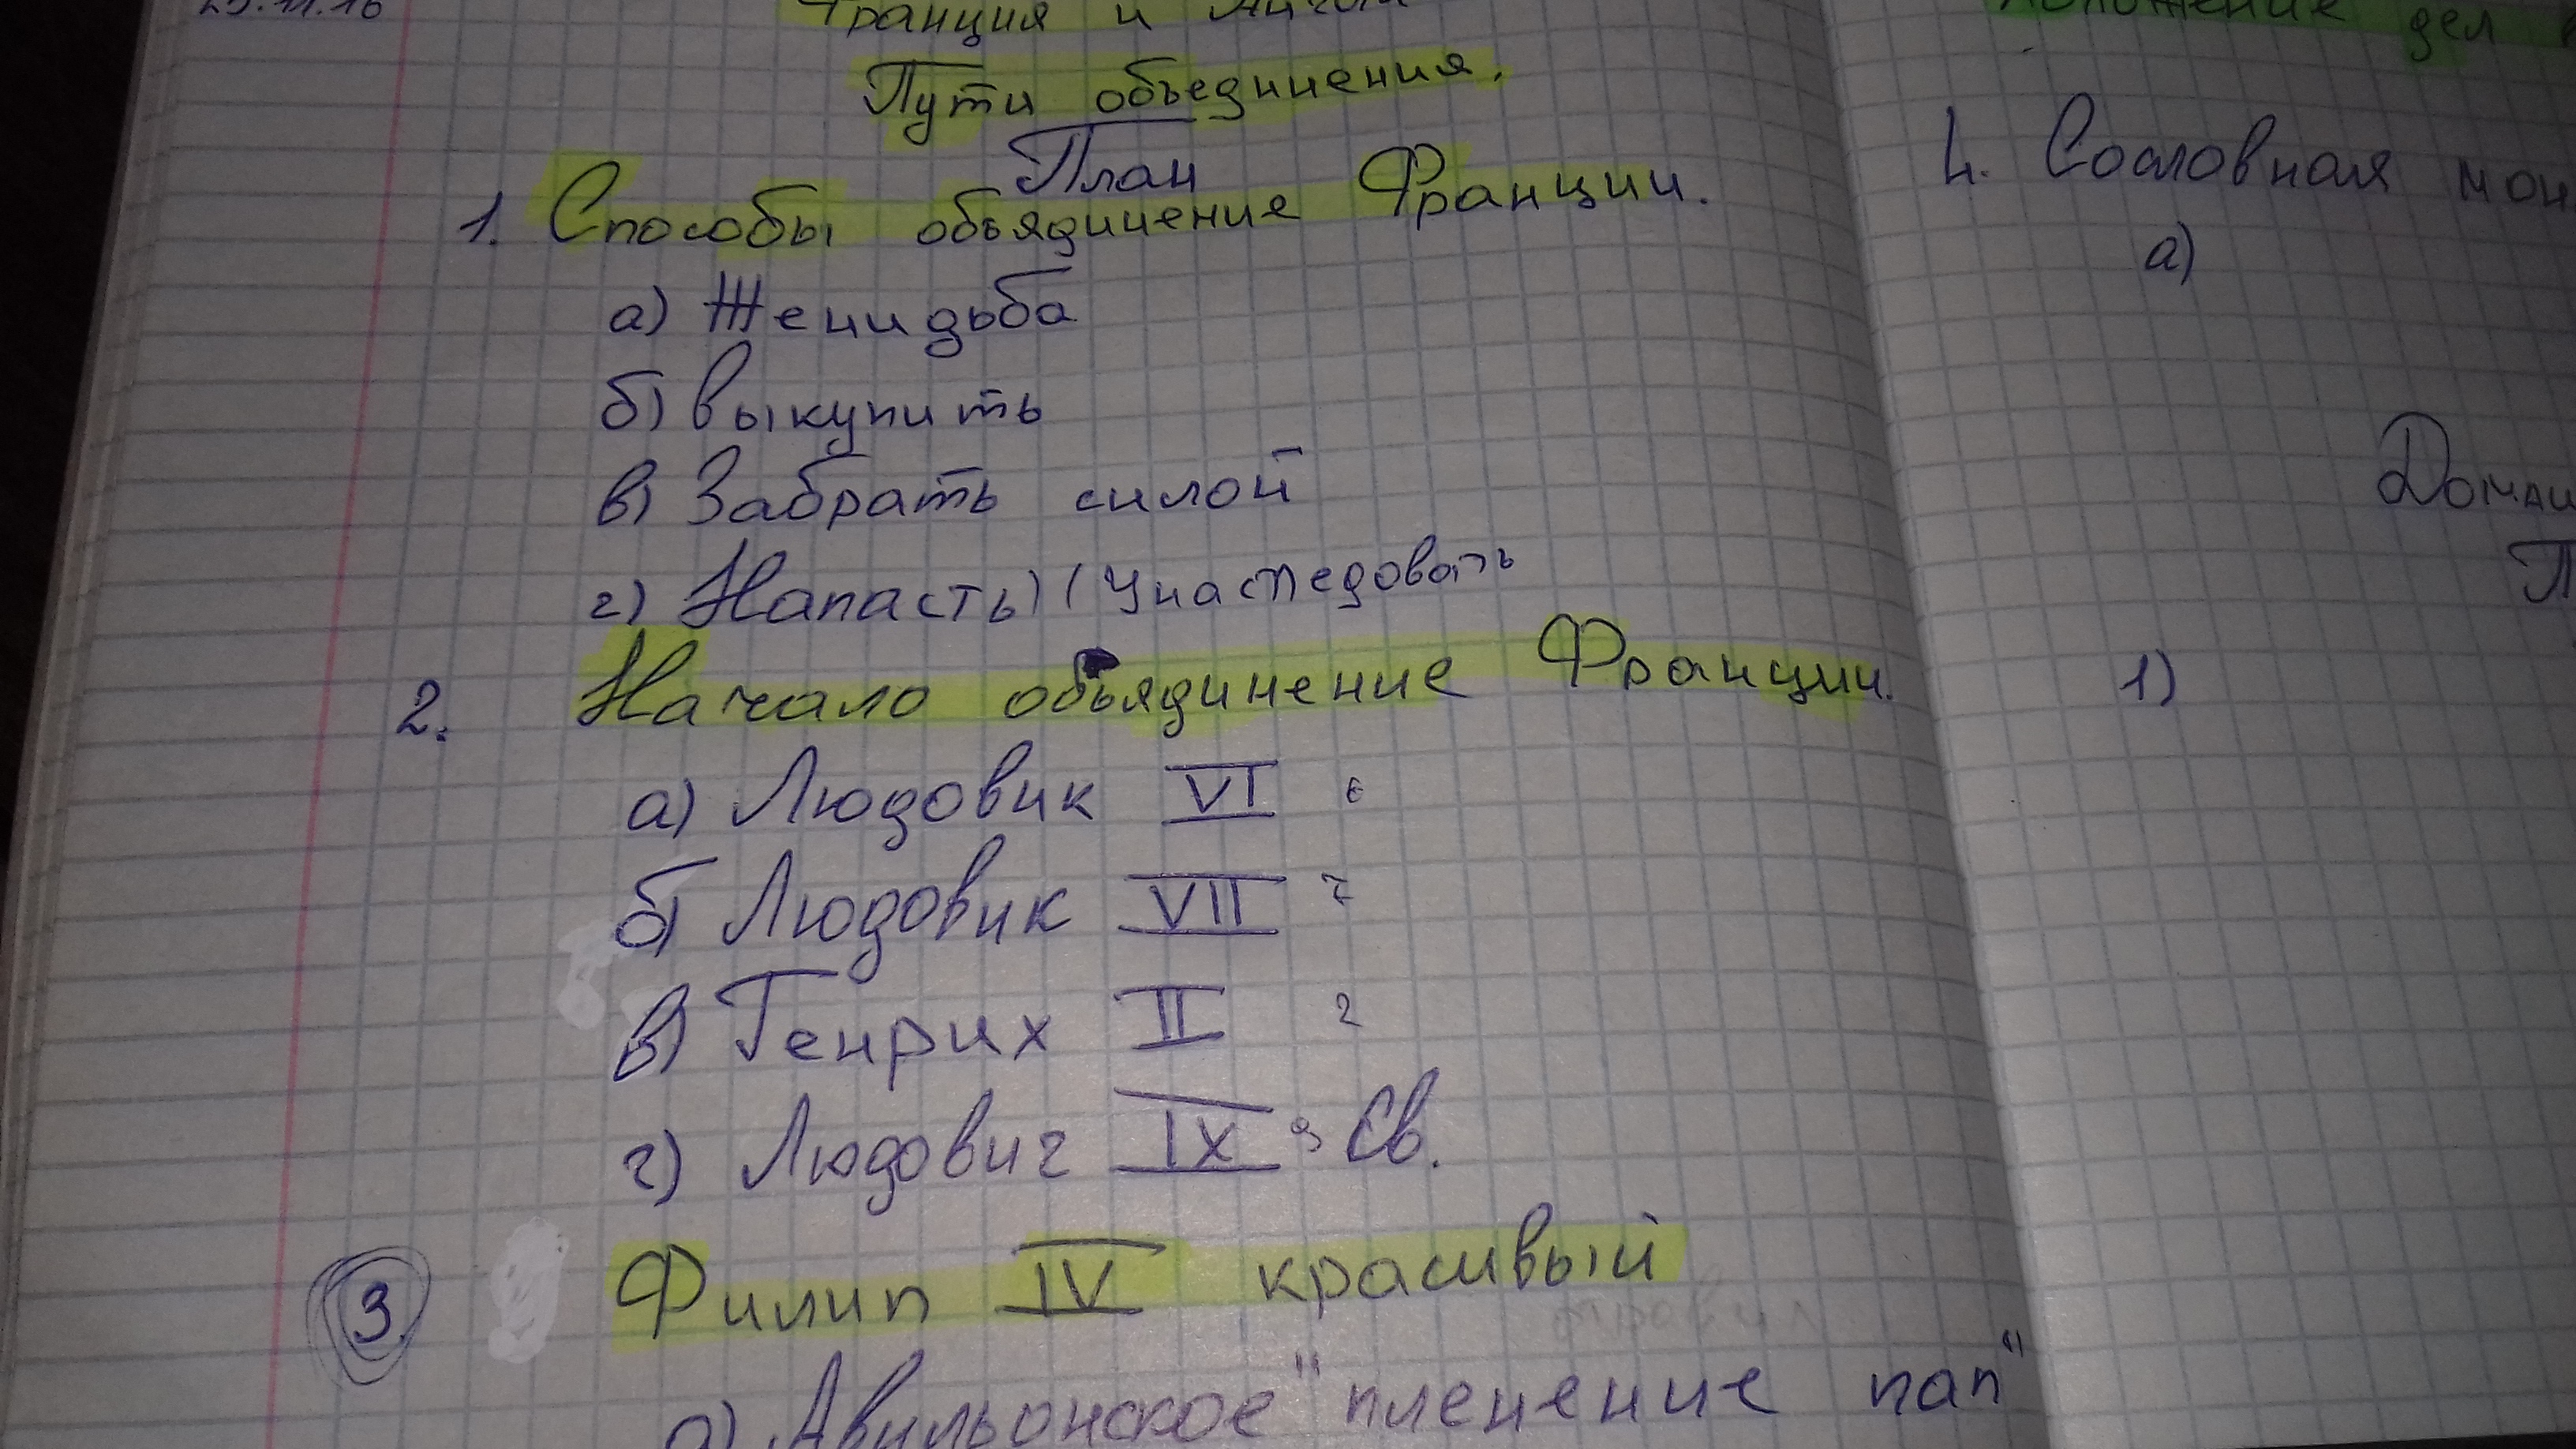 Франция и
Пути объединения.
План
1. Способы объядинение Франции.
а) Женидьба
б) Выкупить
в) Забрать силой
г) Напасть) (Унаследовать
2. Начало объядинение Франции.
а) Людовик VI 6
б) Людовик VII 7
в) Генрих II 2
г) Людовиг IX 9 Св.
3. Филип IV красивый
а) Авильонское "пленение пап"
дел
4. Сословная
а)
1)